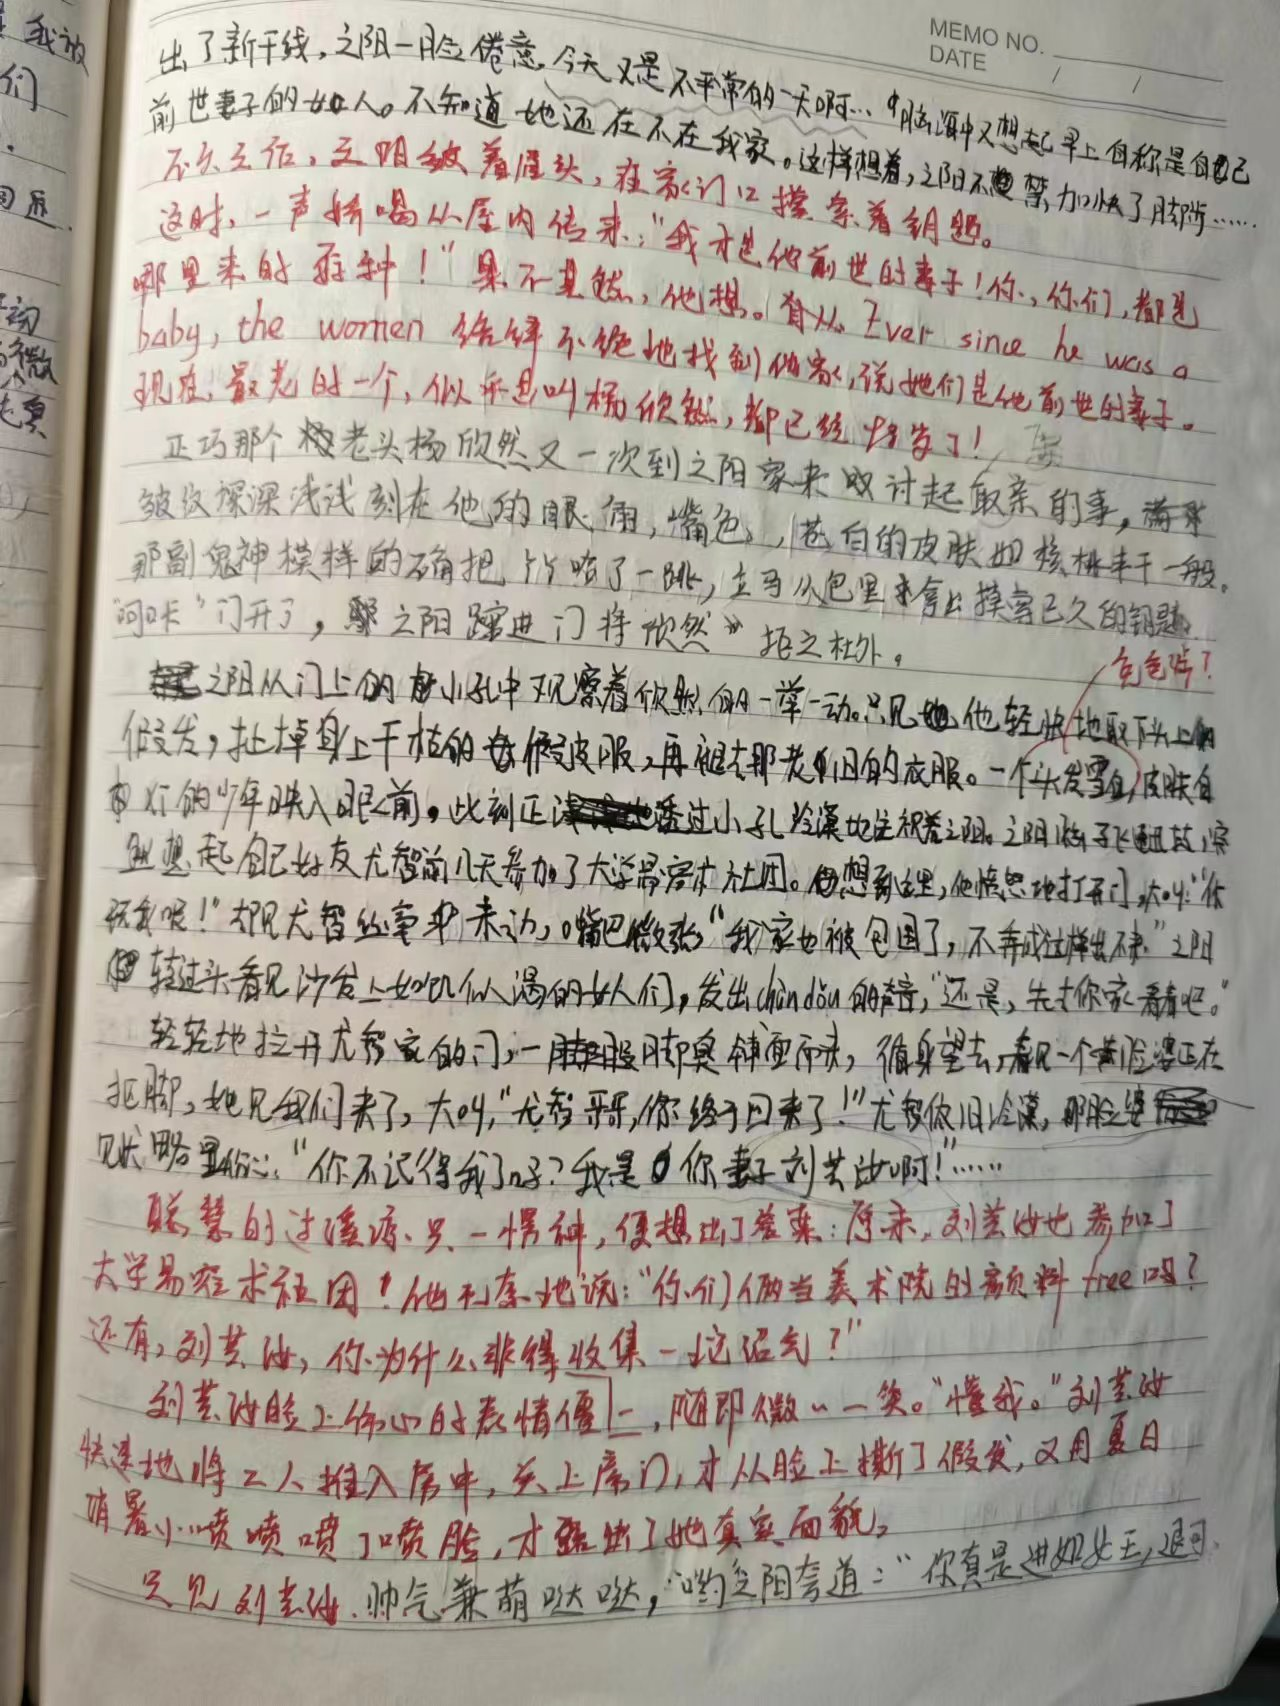 MEMO NO.
DATE / /
出了新干线，之阳一脸倦意，今天又是不平常的一天啊…脑海中又想起早上自称是自己
前世妻子的女人。不知道她还在不在我家。这样想着，之阳不禁加快了脚步……
不久之后，之阳皱着眉头，在家门口摸索着钥匙。
这时，一声娇喝从屋内传来："我才是他前世的妻子！你，你们，都是
哪里来的野种！"果不其然，他想。 Ever since he was a
baby, the women 络绎不绝地找到他家，说她们是他前世的妻子。
现在，最老的一个，似乎是叫杨欣然，都已经 了！
正巧那个老头杨欣然又一次到之阳家来 讨起取亲的事，
皱纹深深浅浅刻在他的眼角，嘴色，苍白的皮肤如核桃 干一般。
那副鬼神模样的确把 吓了一跳，立马从包里拿出摸索已久的钥匙
"咔"门开了，之阳蹿进门将欣然 拒之杜外。
免色涉？
之阳从门上的小孔中观察着欣然的一举一动。只见他轻快地取下头上的
假发，扯掉身上干枯的假皮服，再褪去那老旧的衣服。一个头发雪白，皮肤白
的少年映入眼前。此刻正透过小孔冷漠地注视着之阳。之阳
想起自己好友尤智前几天参加了大学易容术社团。想到这里，他愤怒地打开门，大叫："你
玩我呢！"却见尤智丝毫未动，嘴巴微张，"我家也被包围了，不弄成这样出不来。"之阳
转过头看见沙发上如饥似渴的女人们，发出chàn dǒu的声音，"还是，先才你家看看吧。"
轻轻地拉开尤智家的门，一股脚臭铺面而来，循身望去，看见一个黄脸婆正在
抠脚，她见我们来了，大叫，"尤智哥哥，你终于回来了！"尤智依旧冷漠，那脸婆
见状略显伤心："你不记得我了吗？我是你妻子刘芸汝啊！"……
聪慧的 只一愣神，便想出了答案：原来，刘芸汝也参加了
大学易容术社团！他 地说："你们俩当美术院的颜料free吗？
还有，刘芸汝，你为什么非得收集一 ？"
刘芸汝脸上伤心的表情僵 ，随即微微一笑。"懂我。"刘芸汝
快速地将二人推入房中，关上房门，才从脸上撕了假皮，又用夏日
消暑小喷喷喷了喷脸，才露出了她真实面貌。
只见刘芸汝帅气兼萌哒哒，"哟之阳夸道："你真是进如女王，退可